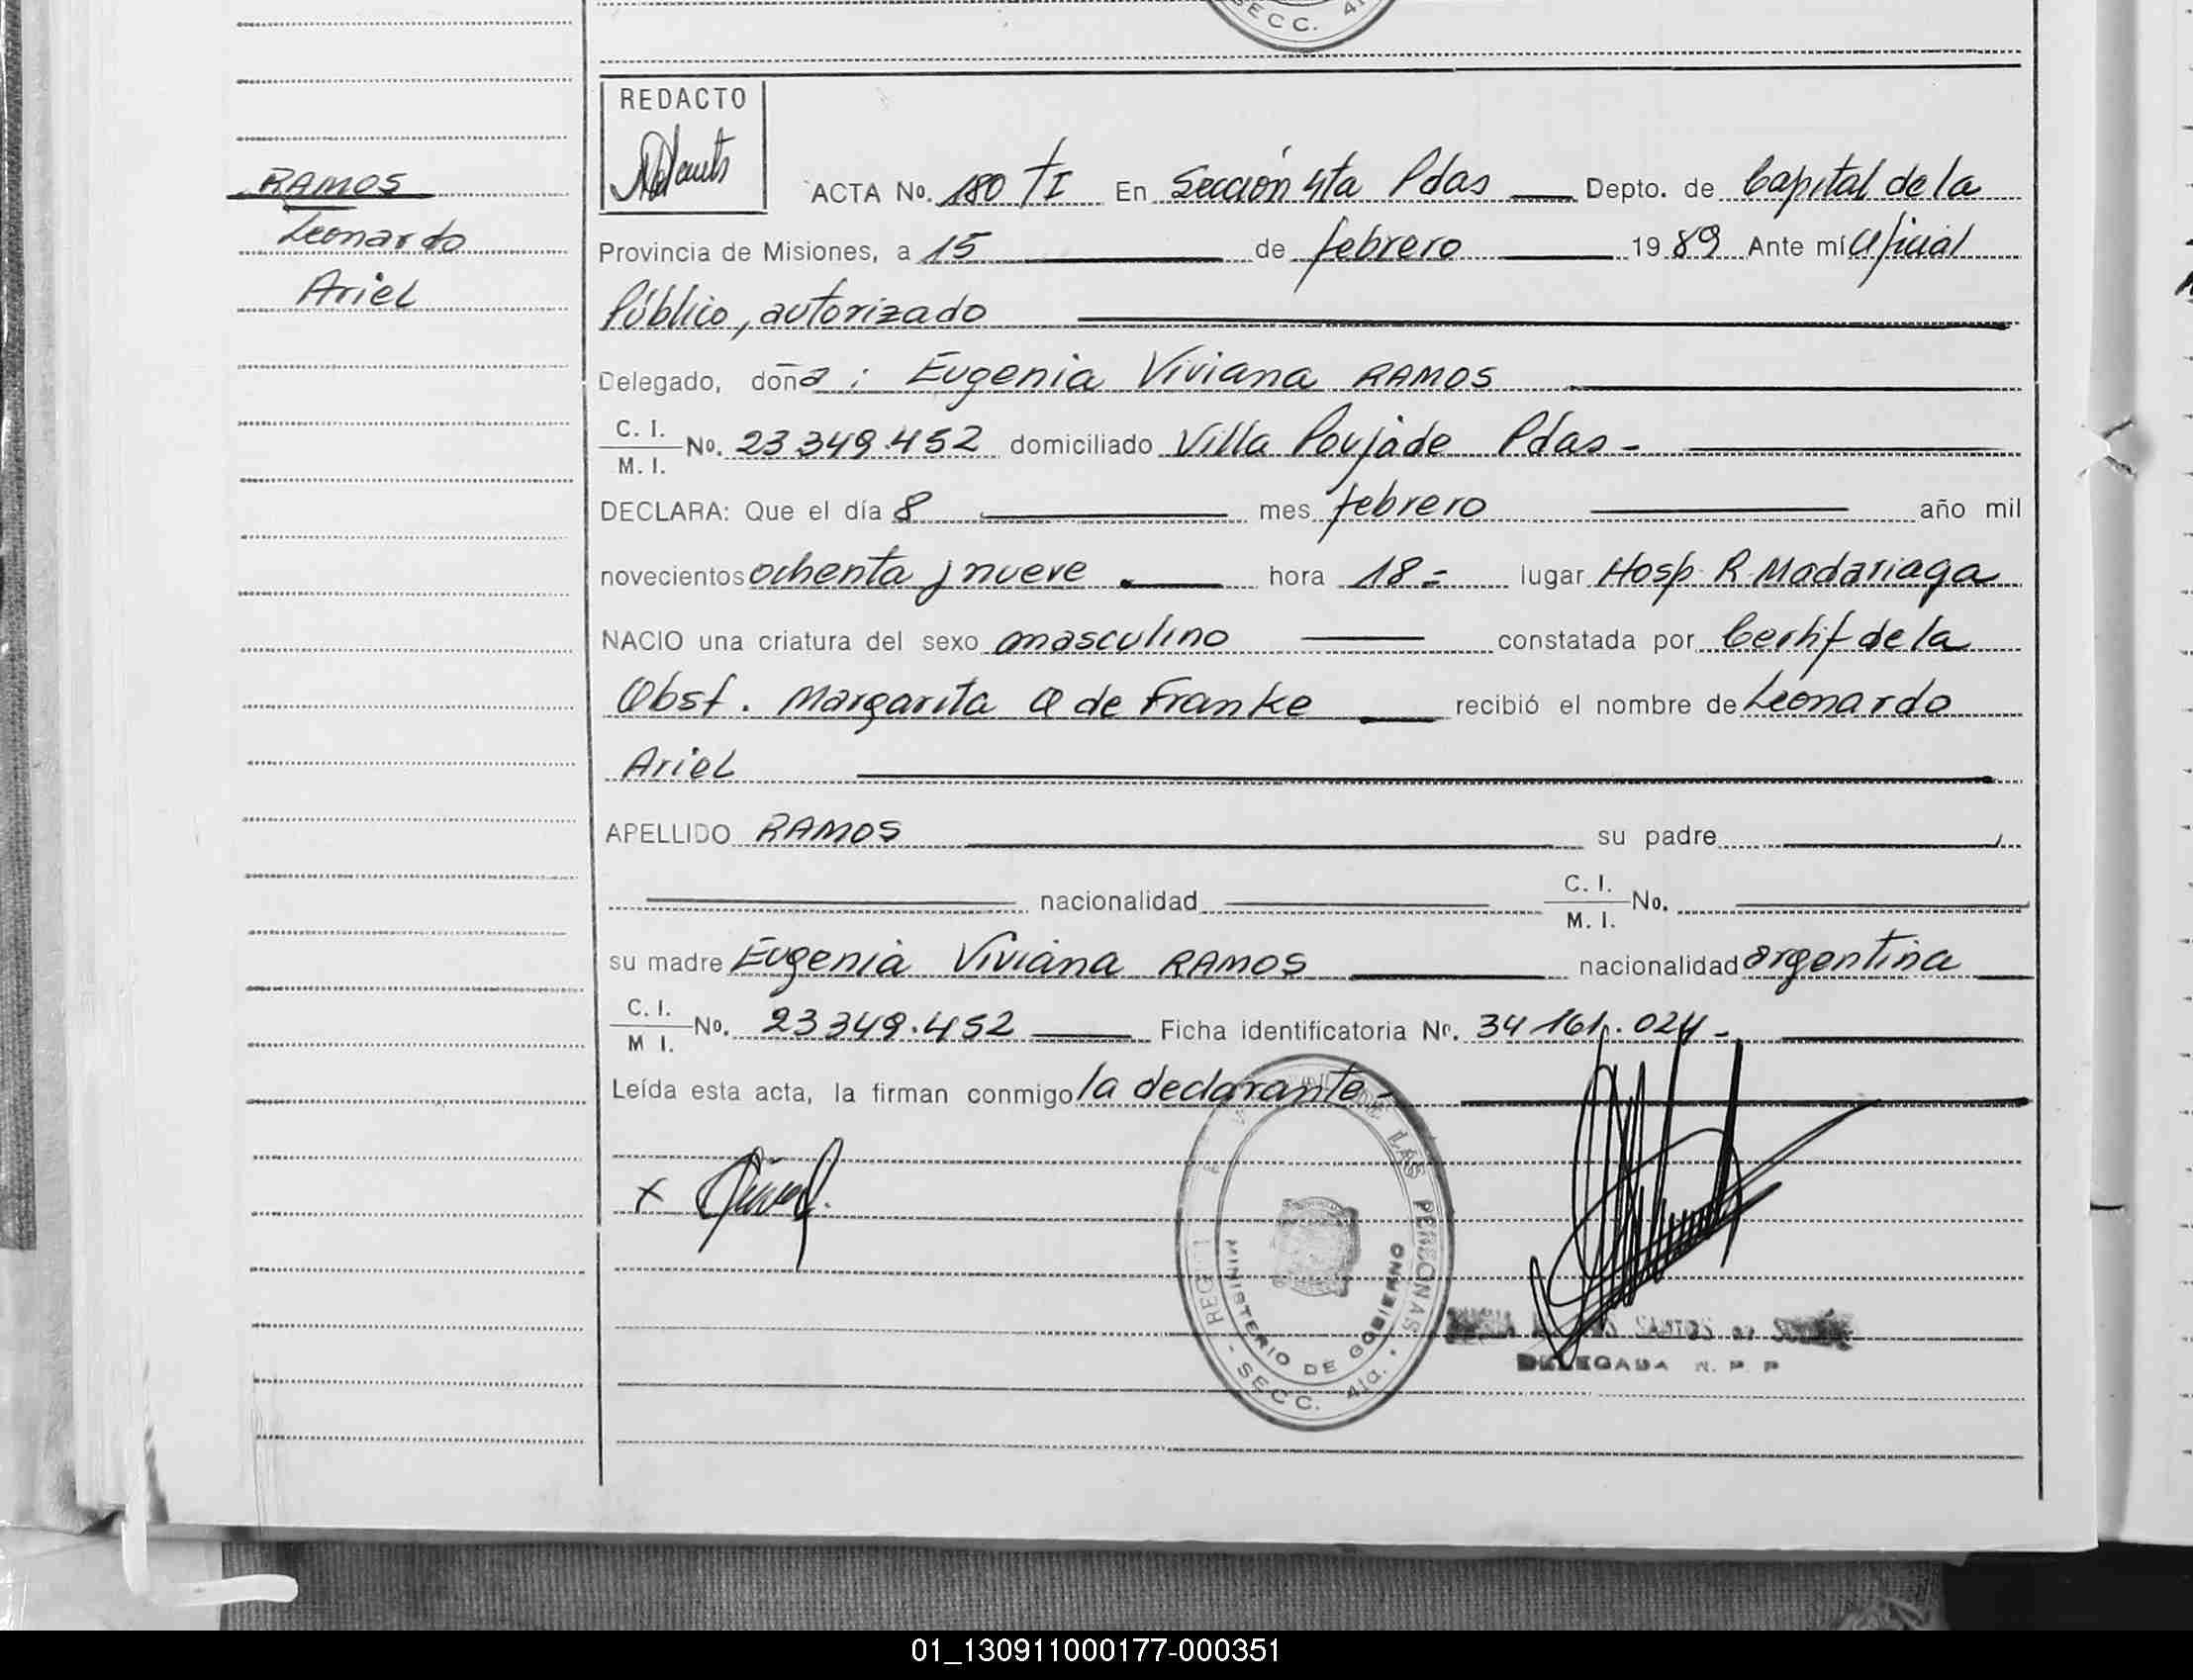 SECC. 4t
REDACTO
RAMOS
Leonardo
Ariel
ACTA No. 180 TI En Sección 4ta Pdas Depto. de Capital de la
Provincia de Misiones, a 15 de febrero 1989 Ante mí Oficial
Público, autorizado
Delegado, doña : Eugenia Viviana RAMOS
C. I.
M. I. No. 23 349.452 domiciliado Villa Poujade Pdas -
DECLARA: Que el día 8 mes febrero año mil
novecientos ochenta y nueve . hora 18 = lugar Hosp R Madariaga
NACIO una criatura del sexo masculino constatada por Certif de la
Obst. Margarita Q de Franke recibió el nombre de Leonardo
Ariel
APELLIDO RAMOS su padre
nacionalidad C. I.
M. I. No.
su madre Eugenia Viviana RAMOS nacionalidad argentina
C. I.
M I. No. 23 349.452 Ficha identificatoria Nr. 34 161.024 -
Leída esta acta, la firman conmigo la declarante -
x
DE LAS PERSONAS
MINISTERIO DE GOBIERNO
SECC. 4ta.
DELEGADA R. P. P
01_130911000177-000351